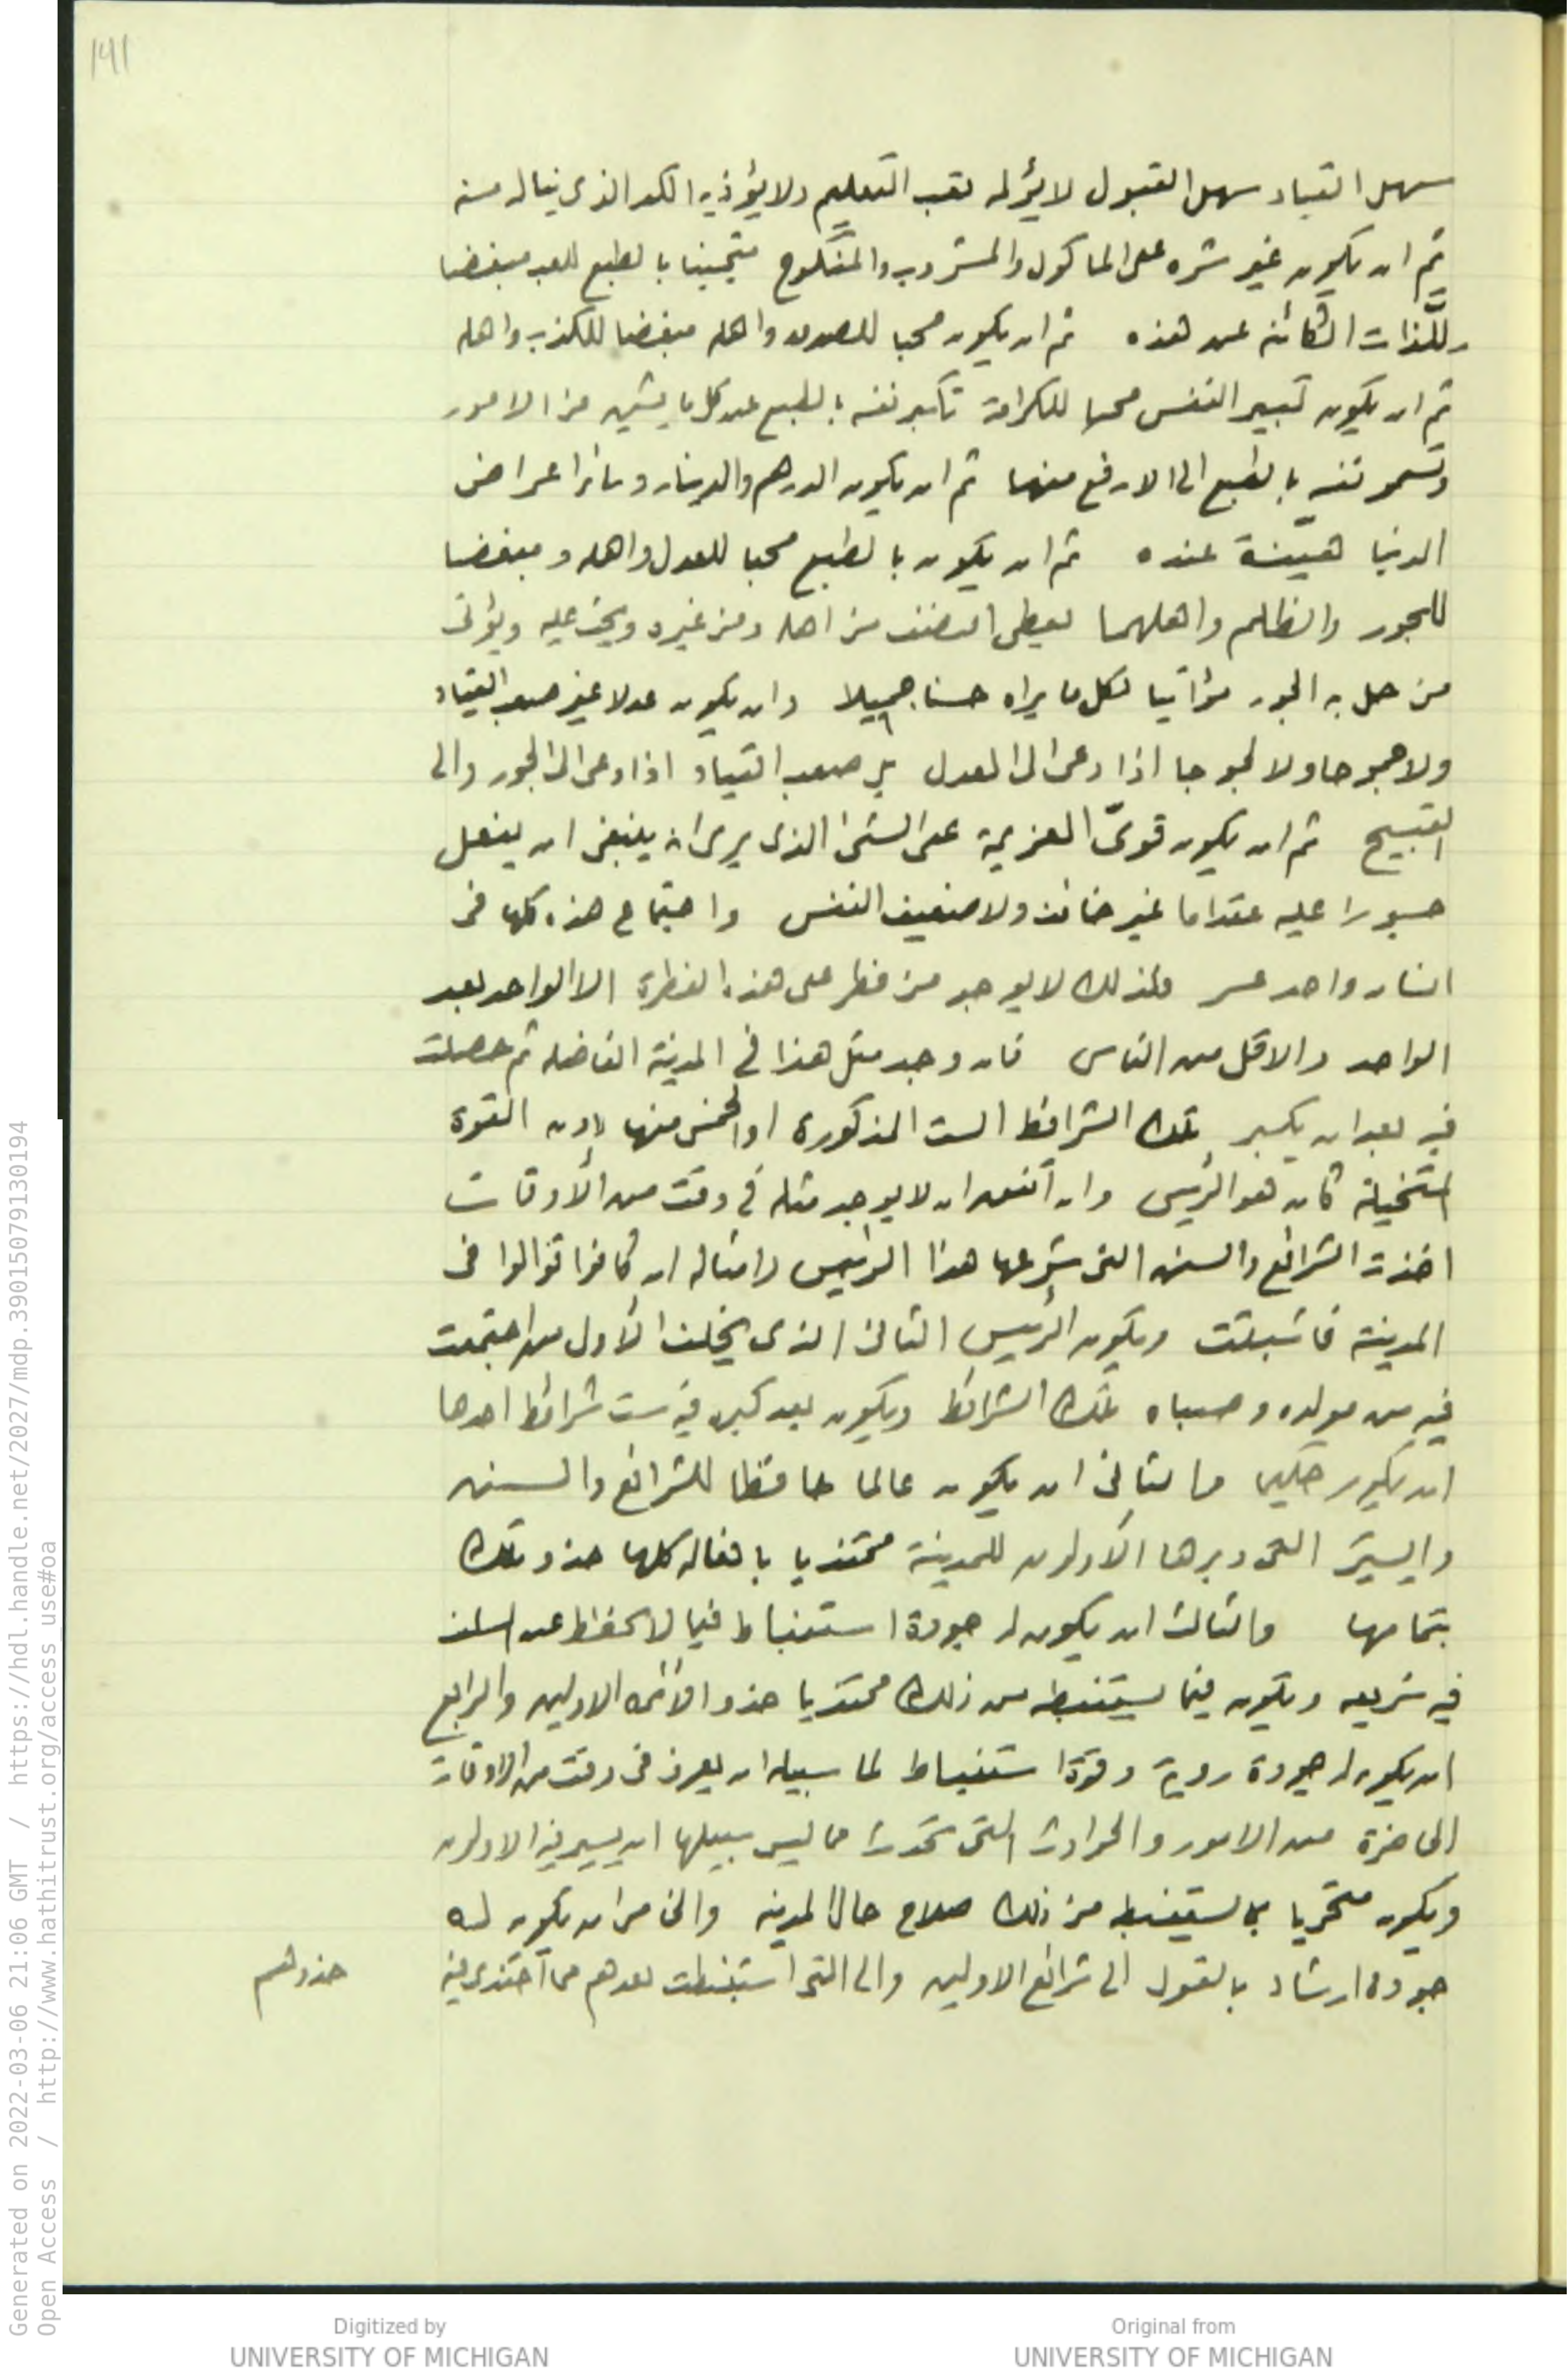 141
سهل القياد سهل القبول لا يؤلمه تعب التعليم ولا يؤذيه الكد الذى يناله منه
ثم ان يكون غير شره على الماكول والمشروب والمنكوح متجنبا بالطبع للعب مبغضا
للّذات الكائنه عن هذه ثم ان يكون محبا للصدق واهله مبغضا للكذب واهله
ثم ان يكون كبير النفس محبا للكرامة تكبر نفسه بالطبع عن كل ما يشين من الامور
وتسمو نفسه بالطبع الى الارفع منها ثم ان يكون الدرهم والدينار وسائر اعراض
الدنيا هيّنة عنده ثم ان يكون بالطبع محبا للعدل واهله ومبغضا
للجور والظلم واهلهما يعطى النصف من اهله ومن غيره ويحث عليه ويؤتى
من حل به الجور مؤاتيا لكل ما يراه حسنا جميلا وان يكون عدلا غير صعب القياد
ولا جموحا ولا لجوجا اذا دعى الى العدل بل صعب القياد اذا دعى الى الجور والى
القبيح ثم ان يكون قوىّ العزيمة على الشئ الذى يرى انه ينبغى ان يفعل
جسورا عليه مقداما غير خائف ولا ضعيف النفس واجتماع هذه كلها فى
انسان واحد عسر فلذلك لا يوجد من فطر على هذه الفطرة الا الواحد بعد
الواحد والاقل من الناس فان وجد مثل هذا فى المدينة الفاضله ثم حصلت
فيه بعد ان يكبر تلك الشرائط الست المذكورة او الخمس منها دون القوة
المتخيلة كان هو الرئيس وان اتفق ان لا يوجد مثله فى وقت من الأوقات
اخذت الشرائع والسنن التى شرعها هذا الرئيس وامثاله ان كانوا توالوا فى
المدينة فاثبتت ويكون الرئيس الثانى الذى يخلف الأول من اجتمعت
فيه من مولده وصباه تلك الشرائط ويكون بعد كبره فيه ست شرائط احدها
ان يكون حكيما والثانى ان يكون عالما حافظا للشرائع والسنن
والسير التى دبرها الأولون للمدينة محتذيا بافعاله كلها حذو تلك
بتمامها والثالث ان يكون له جودة استنباط فيما لا يحفظ عن السلف
فيه شريعه ويكون فيما يستنبطه من ذلك محتذيا حذو الائمه الاولين والرابع
ان يكون له جودة روية وقوة استنباط لما سبيله ان يعرف فى وقت من الاوقات
الحاضرة من الامور والحوادث التى تحدث مما ليس سبيلها ان يسير فيه الاولون
ويكون متحريا بما يستنبطه من ذلك صلاح حال المدينه والخامس ان يكون له
جودة ارشاد بالقول الى شرائع الاولين والى التى استنبطت بعدهم مما احتذى فيه
حذوهم
Generated on 2022-03-06 21:06 GMT / https://hdl.handle.net/2027/mdp.39015079130194
Open Access / http://www.hathitrust.org/access_use#oa
Digitized by
UNIVERSITY OF MICHIGAN
Original from
UNIVERSITY OF MICHIGAN